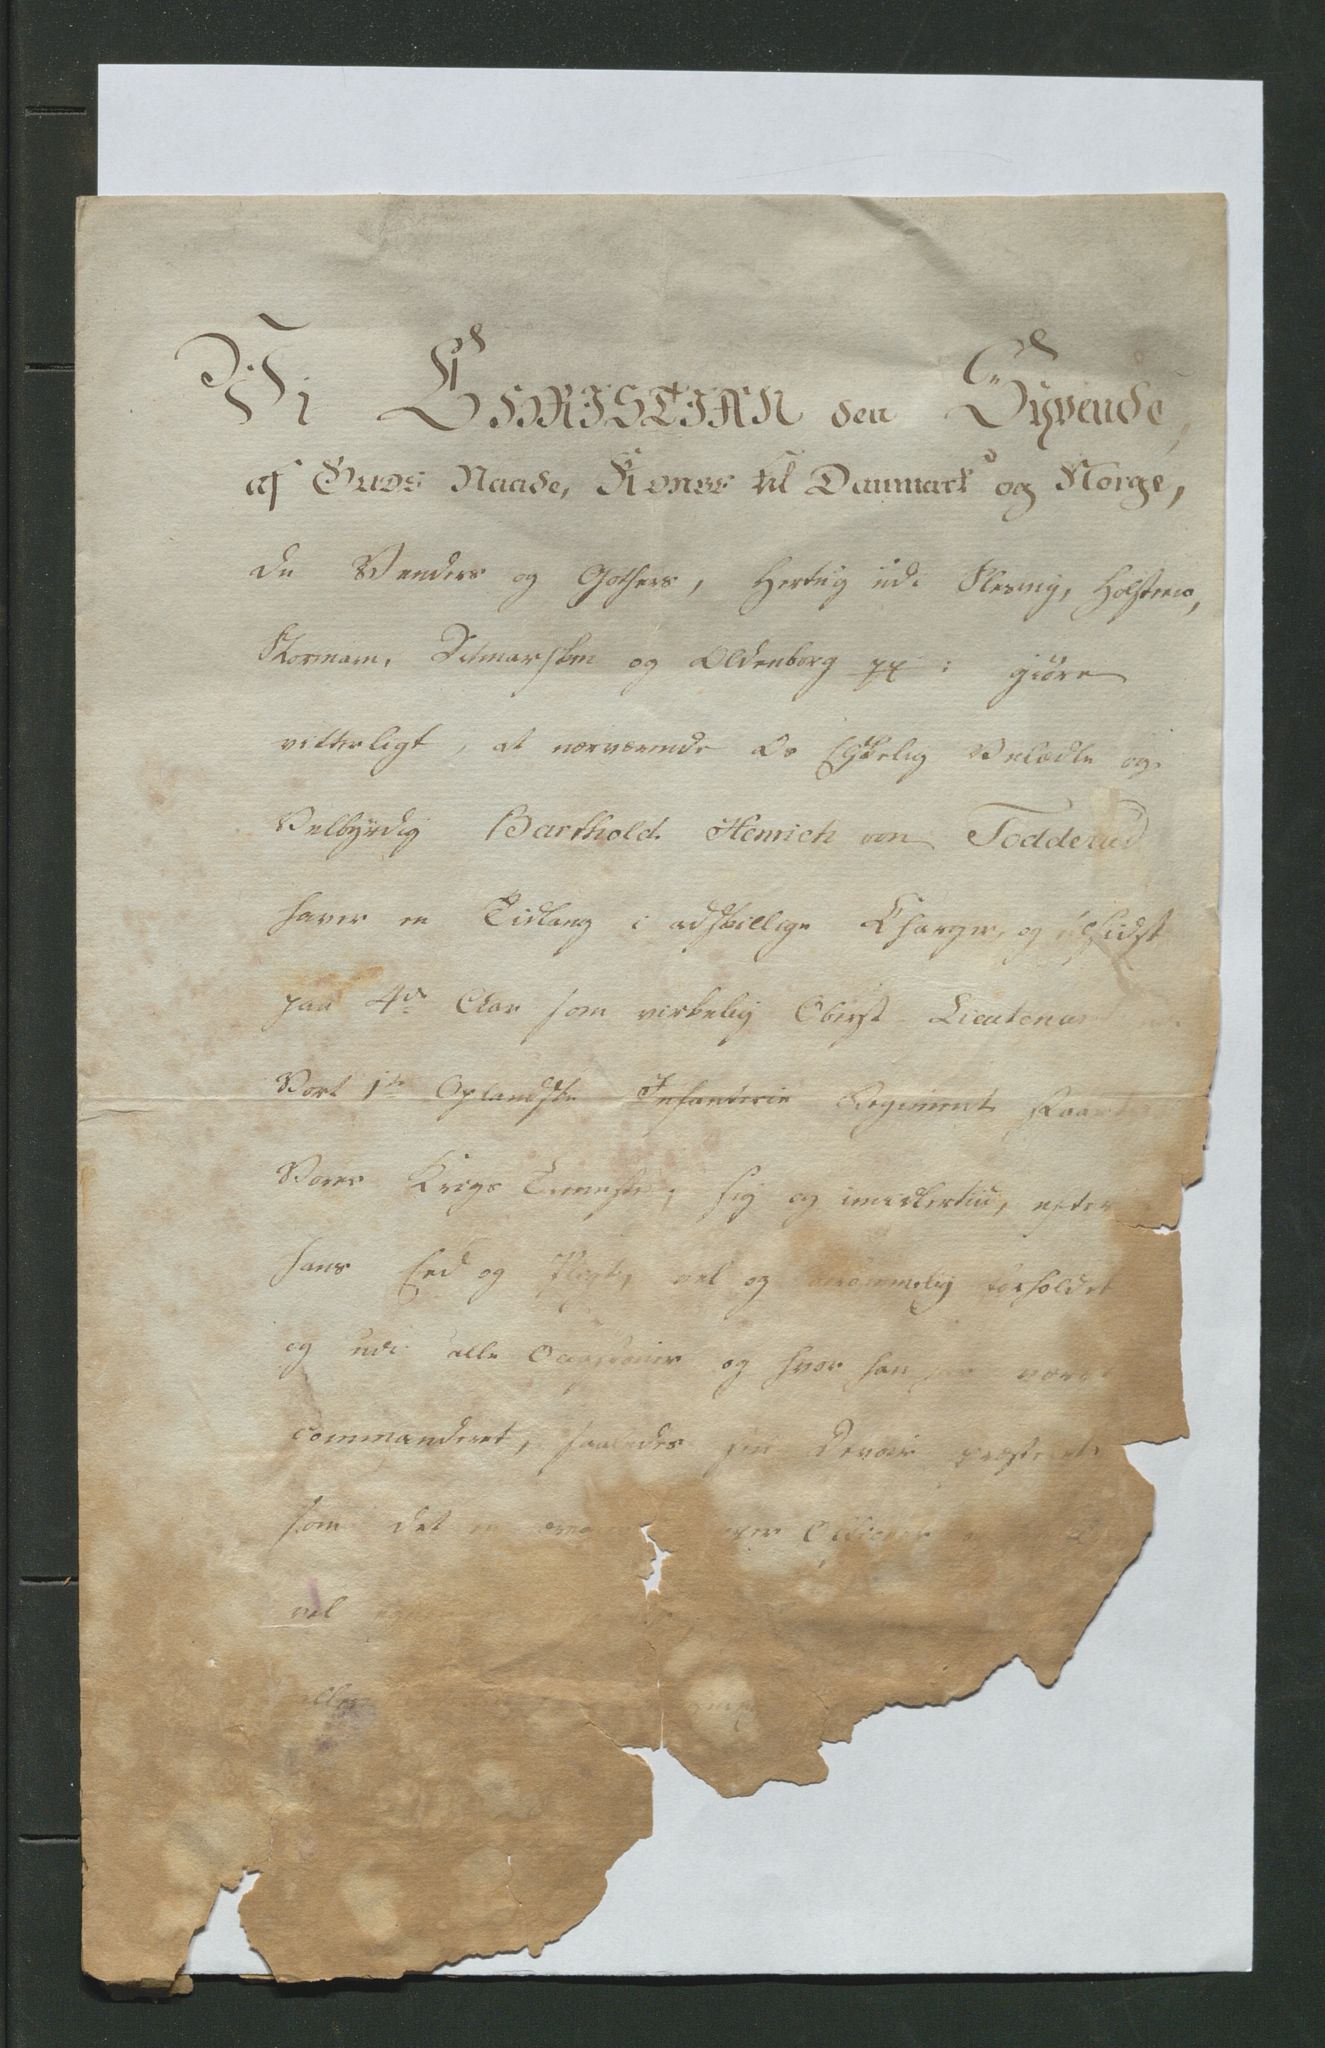 Vi CHRISTIAN den Syvende,
af Guds Naade, Konge til Danmark og Norge,
de Venders og Gothers, Hertug udi Slesvig, Holsteen,
Stormarn, Ditmarsken og Oldenborg pp: giøre
vitterligt, at nærværende Os Elskelig Velædle og
Velbyrdig Barthold Henrich von Todderud
haver en Tidlang i adskillige Charger, og tilsidst
paa 4de Aar som virkelig Oberst Lieutenant
Vort 1te Oplandske Infanterie Regiment staaet
Vores Krigs Tieneste, sig og imidlertiid, efter
hans Eed og Pligt, vel og berømmelig forholdet
og udi alle Occasioner og hvor han har været
commanderet, saaledes sin Devoir præsteret
som det en Officier
vel